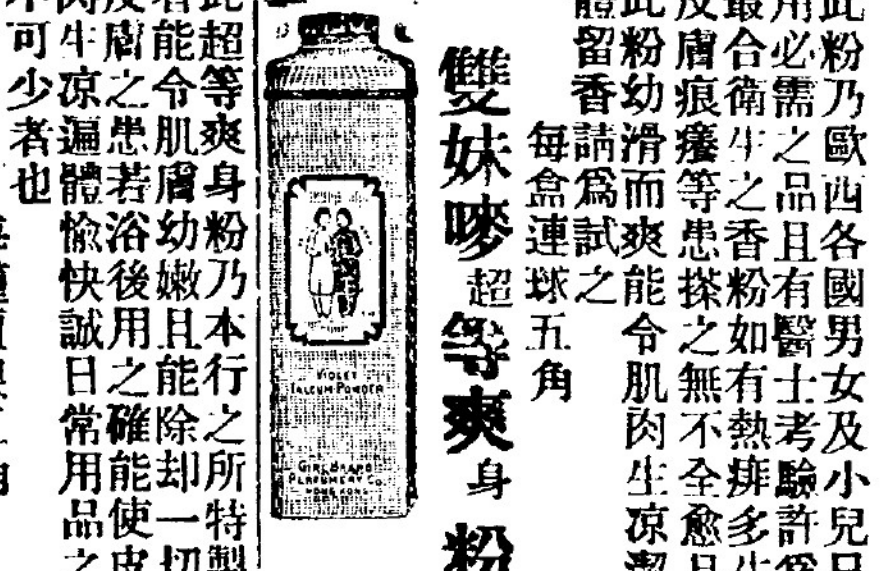 此粉乃歐西各國男女及小兒日
用必需之品且有醫士考驗許爲
最合衛生之香粉如有熱痱多生
皮膚痕癢等患搽之無不全愈且
此粉幼滑而爽能令肌肉生凉潔
體留香請爲試之
每盒連球五角
雙妹嘜超等爽身粉
VIOLET
TALCUM POWDER
GIRL BRAND
PERFUMERY CO.
HONG KONG
此超等爽身粉乃本行之所特製
者能令肌膚幼嫩且能除却一切
皮膚之患若浴後用之確能使皮
肉生凉遍體愉快誠日常用品之
不可少者也